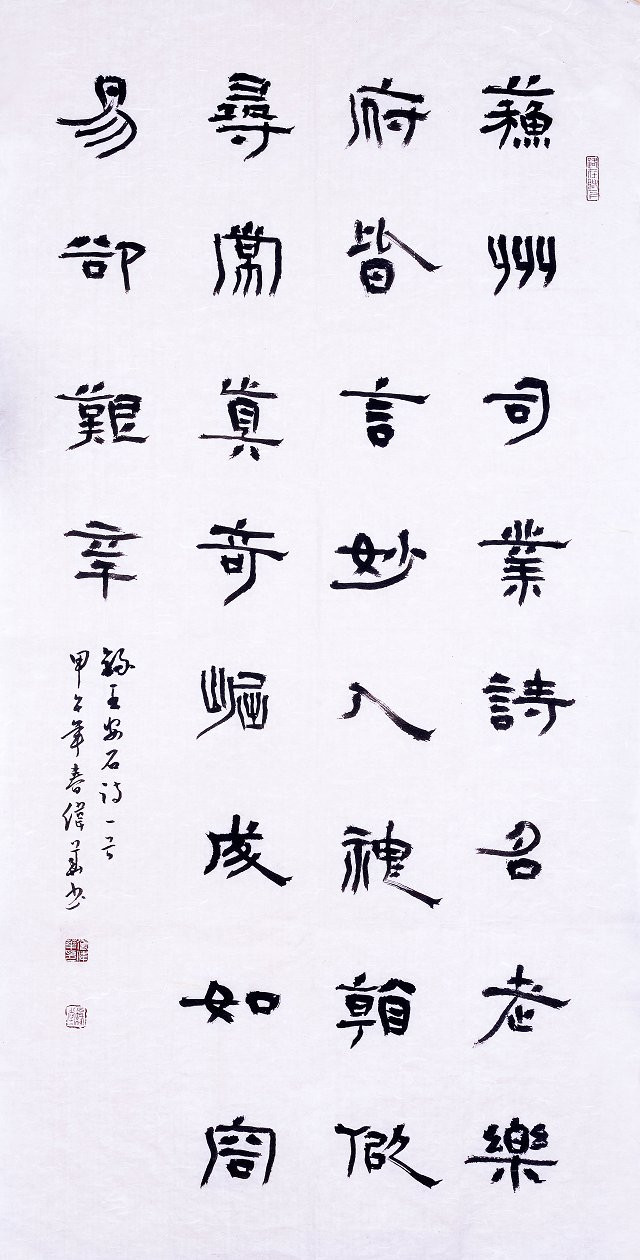 蘇州司業詩名老樂
府皆言妙入神看似
尋常真奇崛成如容
易卻艱辛
錄王安石詩一首
甲午年春偉書